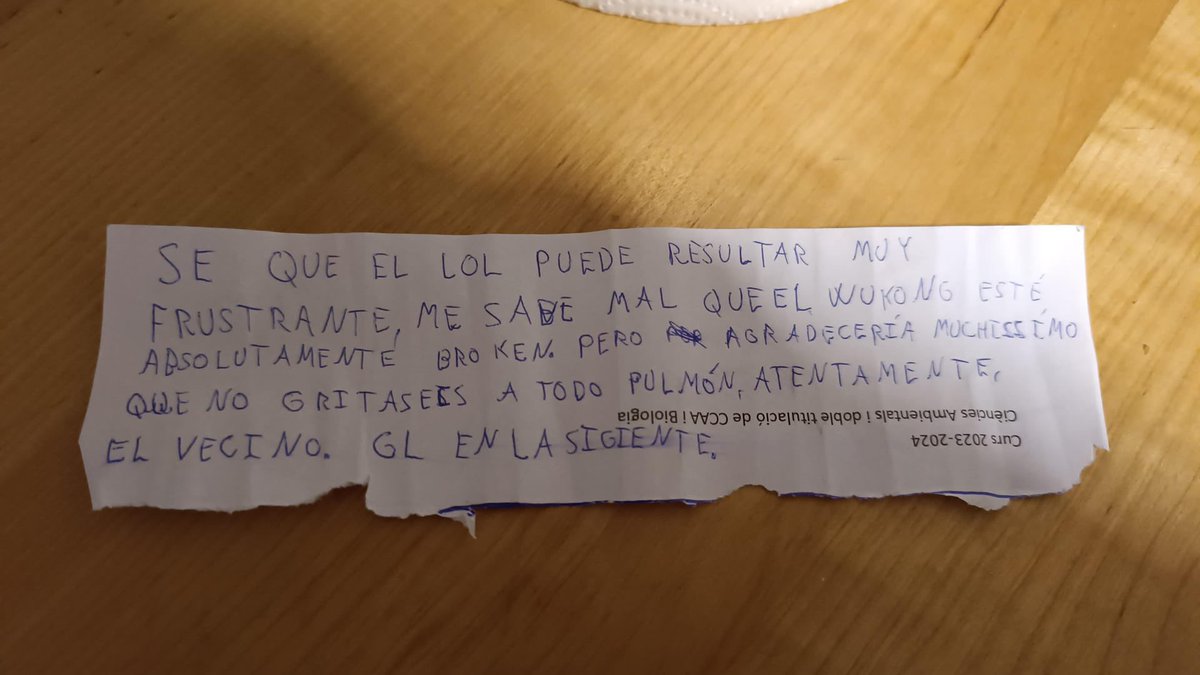 SE QUE EL LOL PUEDE RESULTAR MUY
FRUSTRANTE, ME SABE MAL QUE EL WUKONG ESTÉ
ABSOLUTAMENTE BROKEN. PERO AGRADECERÍA MUCHISSÍMO
QUE NO GRITASEIS A TODO PULMÓN, ATENTAMENTE,
EL VECINO. GL EN LA SIGIENTE.
Curs 2023-2024
Ciències Ambientals i doble titulació de CCAA i Biologia